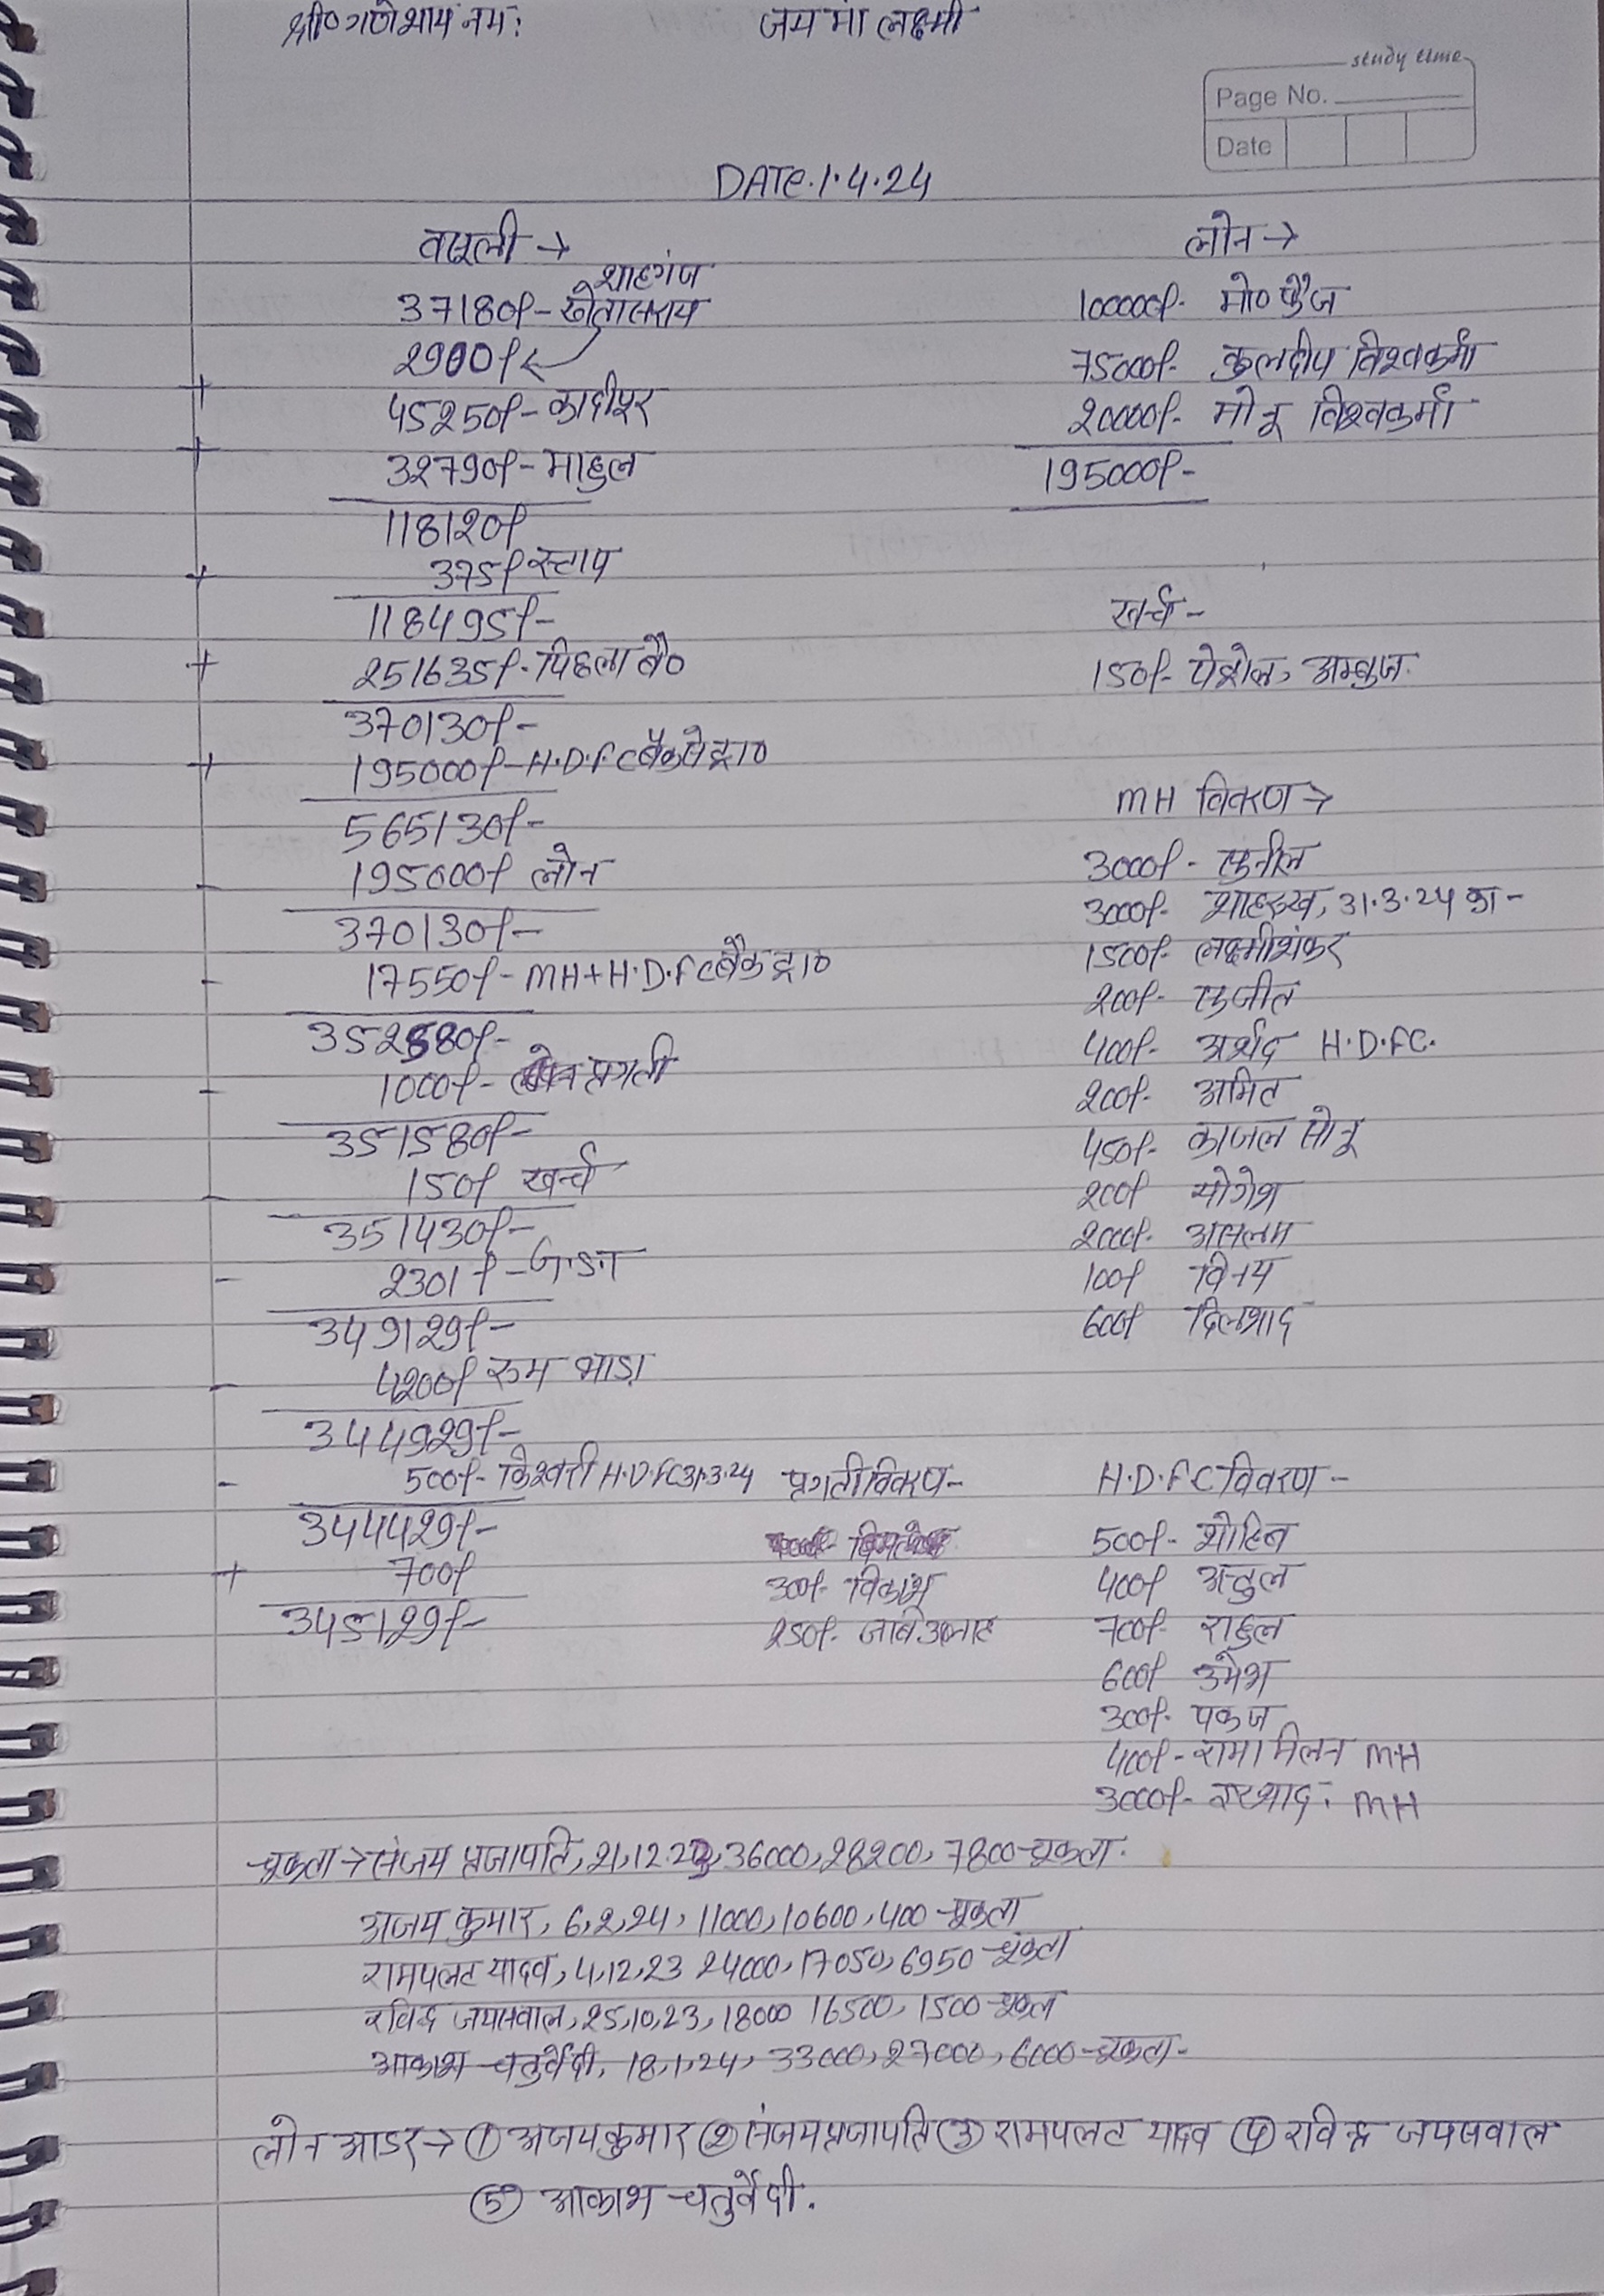 श्री० गणेशाय नमः
जय मां लक्ष्मी
study time
Page No.
Date
DATe. 1.4.24
वसूली →
शाहगंज
37180/- खेतासराय
2900/- ←
+ 45250/- कादीपुर
+ 32790/- माहुल
118120/
+ 375/ स्टाप
118495/-
+ 251635/- पिछला बै०
370130/-
+ 195000/- H.D.F.C बैंक से ट्रा०
565130/-
- 195000/ लोन
370130/-
- 17550/- MH + H.D.F.C बैंक ट्रा०
352580/-
- 1000/- प्रगती
351580/-
- 150/ खर्च
351430/-
- 2301/- G.S.T
349129/-
- 4200/ रुम भाडा
344929/-
- 500/- H.D.FC 31.3.24
344429/-
+ 700/
345129/-
लोन →
100000/- मो० फैज
75000/- कुलदीप विश्वकर्मा
20000/- मोनू विश्वकर्मा
195000/-
खर्च -
150/- पेट्रोल, अम्बुज
MH विवरण →
3000/- सुनील
3000/- शाहरुख, 31.3.24 का -
1500/- लक्ष्मीशंकर
200/- सुजीत
400/- अर्शद H.D.FC.
200/- अमित
450/- काजल सोनू
200/ योगेश
2000/- असलम
100/ विनय
600/ दिलशाद
प्रगती विवरण -
300/- विकाश
250/-
H.D.F.C विवरण -
500/- शोहिब
400/ अतुल
700/- राहुल
600/ उमेश
300/- पकज
400/- रामा मिलन MH
3000/- इरशाद. MH
चूकता → संजय प्रजापति, 21,12.23, 36000, 28200, 7800 - चूकता.
अजय कुमार, 6,2,24, 11000, 10600, 400 - चूकता
रामपलट यादव, 4,12,23 24000, 17050, 6950 - चूकता
रविन्द्र जयसवाल, 25,10,23, 18000 16500, 1500 - चूकता
आकाश चतुर्वेदी, 18,1,24, 33000, 27000, 6000 - चूकता -
लोन आडर → ① अजय कुमार ② संजय प्रजापति ③ रामपलट यादव ④ रविन्द्र जयसवाल
⑤ आकाश चतुर्वेदी.